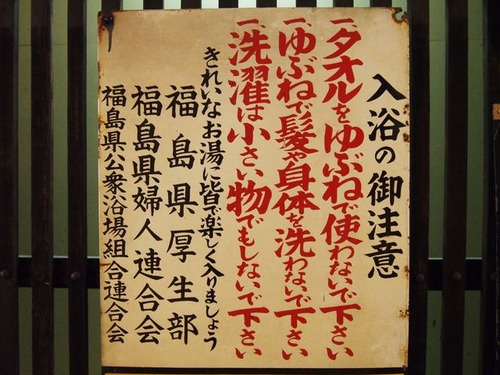 入浴の御注意
一、タオルをゆぶねで使わないで下さい
一、ゆぶねで髪や身体を洗わないで下さい
一、洗濯は小さい物でもしないで下さい
きれいなお湯に皆で楽しく入りましょう
福島県厚生部
福島県婦人連合会
福島県公衆浴場組合連合会